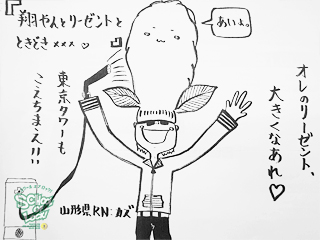 『翔やんとリーゼントと
ときどき×××♡』
あいよ。
オレのリーゼント、
大きくなあれ♡
東京タワーも
こえちまえ!!
山形県RN:カズ